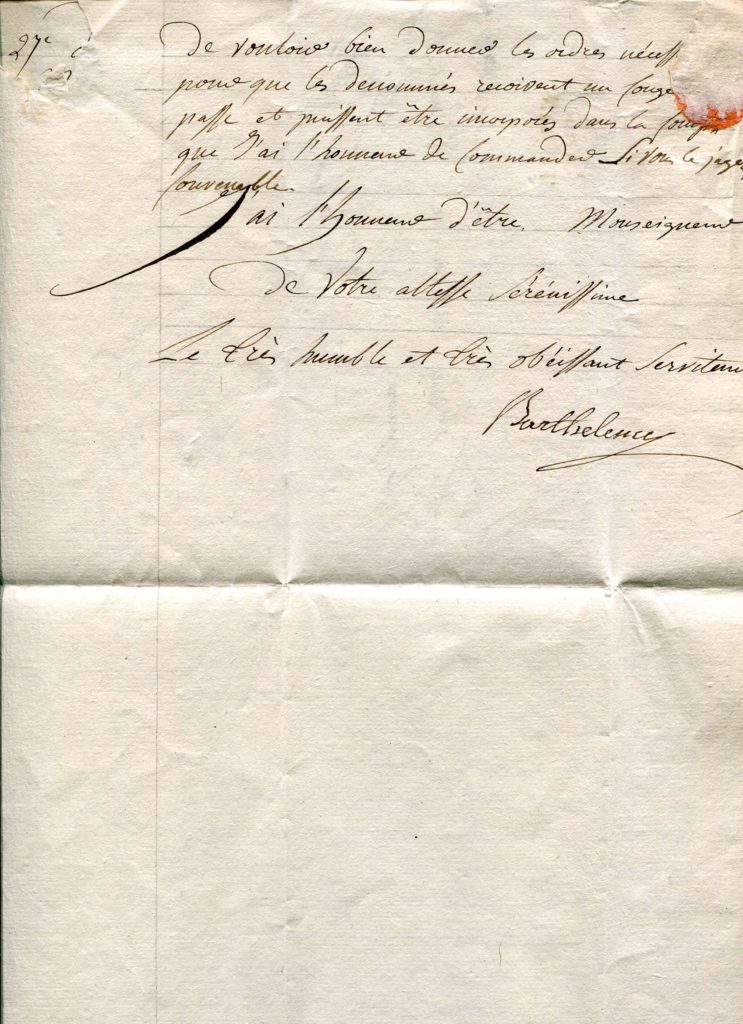 27e
de vouloir bien donner les ordres nécess
pour que les denommés recoivent un Conge
passe et puissent être incorporés dans la Comp
que J'ai l'honneur de Commander Si vous le juge
Convenable.
J'ai l'honneur d'être, Monseigneur
De Votre altesse Sérénissime
Le très humble et très obéissant Serviteur
Barthelemy